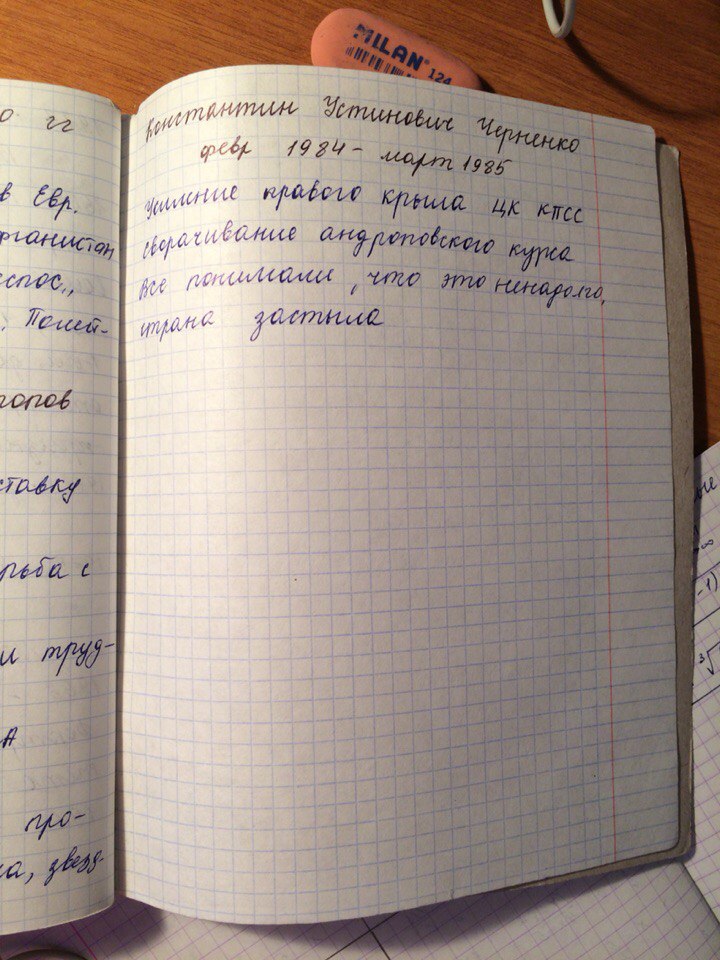 MILAN® 124
о гг
в Евр.
фганистан
еспос.,
. Полей-
ропов
ставку
рьба с
и труд-
А
про-
ка, звезд-
Константин Устинович Черненко
февр 1984 - март 1985
Усиление правого крыла ЦК КПСС
сворачивание андроповского курса
все понимали, что это ненадолго,
страна застыла
-1)
∞
³√